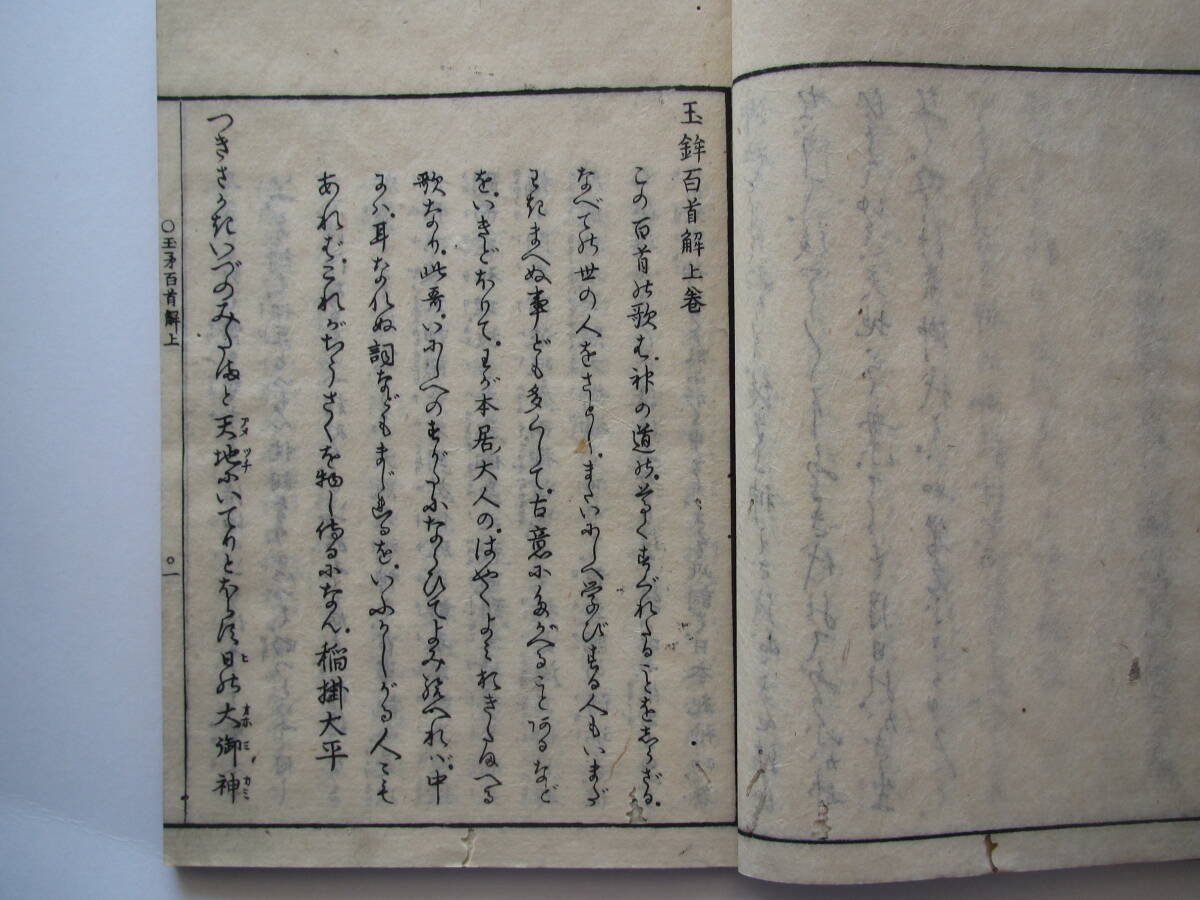 玉鉾百首解上巻
この百首の歌は、神の道の、尊くすぐれたることをしらざる、
なべての世の人をさとし、またいにしへ学びする人もいまだ
わきまへぬ事ども多くして、古意にたがへることあるなど
を、いきどほりて、わが本居大人の、はやくよみおきたまへる
歌なり、此哥、いにしへのすがたにならひてよみ給へれば、中
には、耳なれぬ詞などもまじれるを、いぶかしがる人々も
あれば、これがちうさくを物し侍るになん、稲掛大平
つきさかきいつのみたまと天地にいてりとほらす日の大御神
アメツチ
ヒ
オホミカミ
○玉矛百首解上
○一